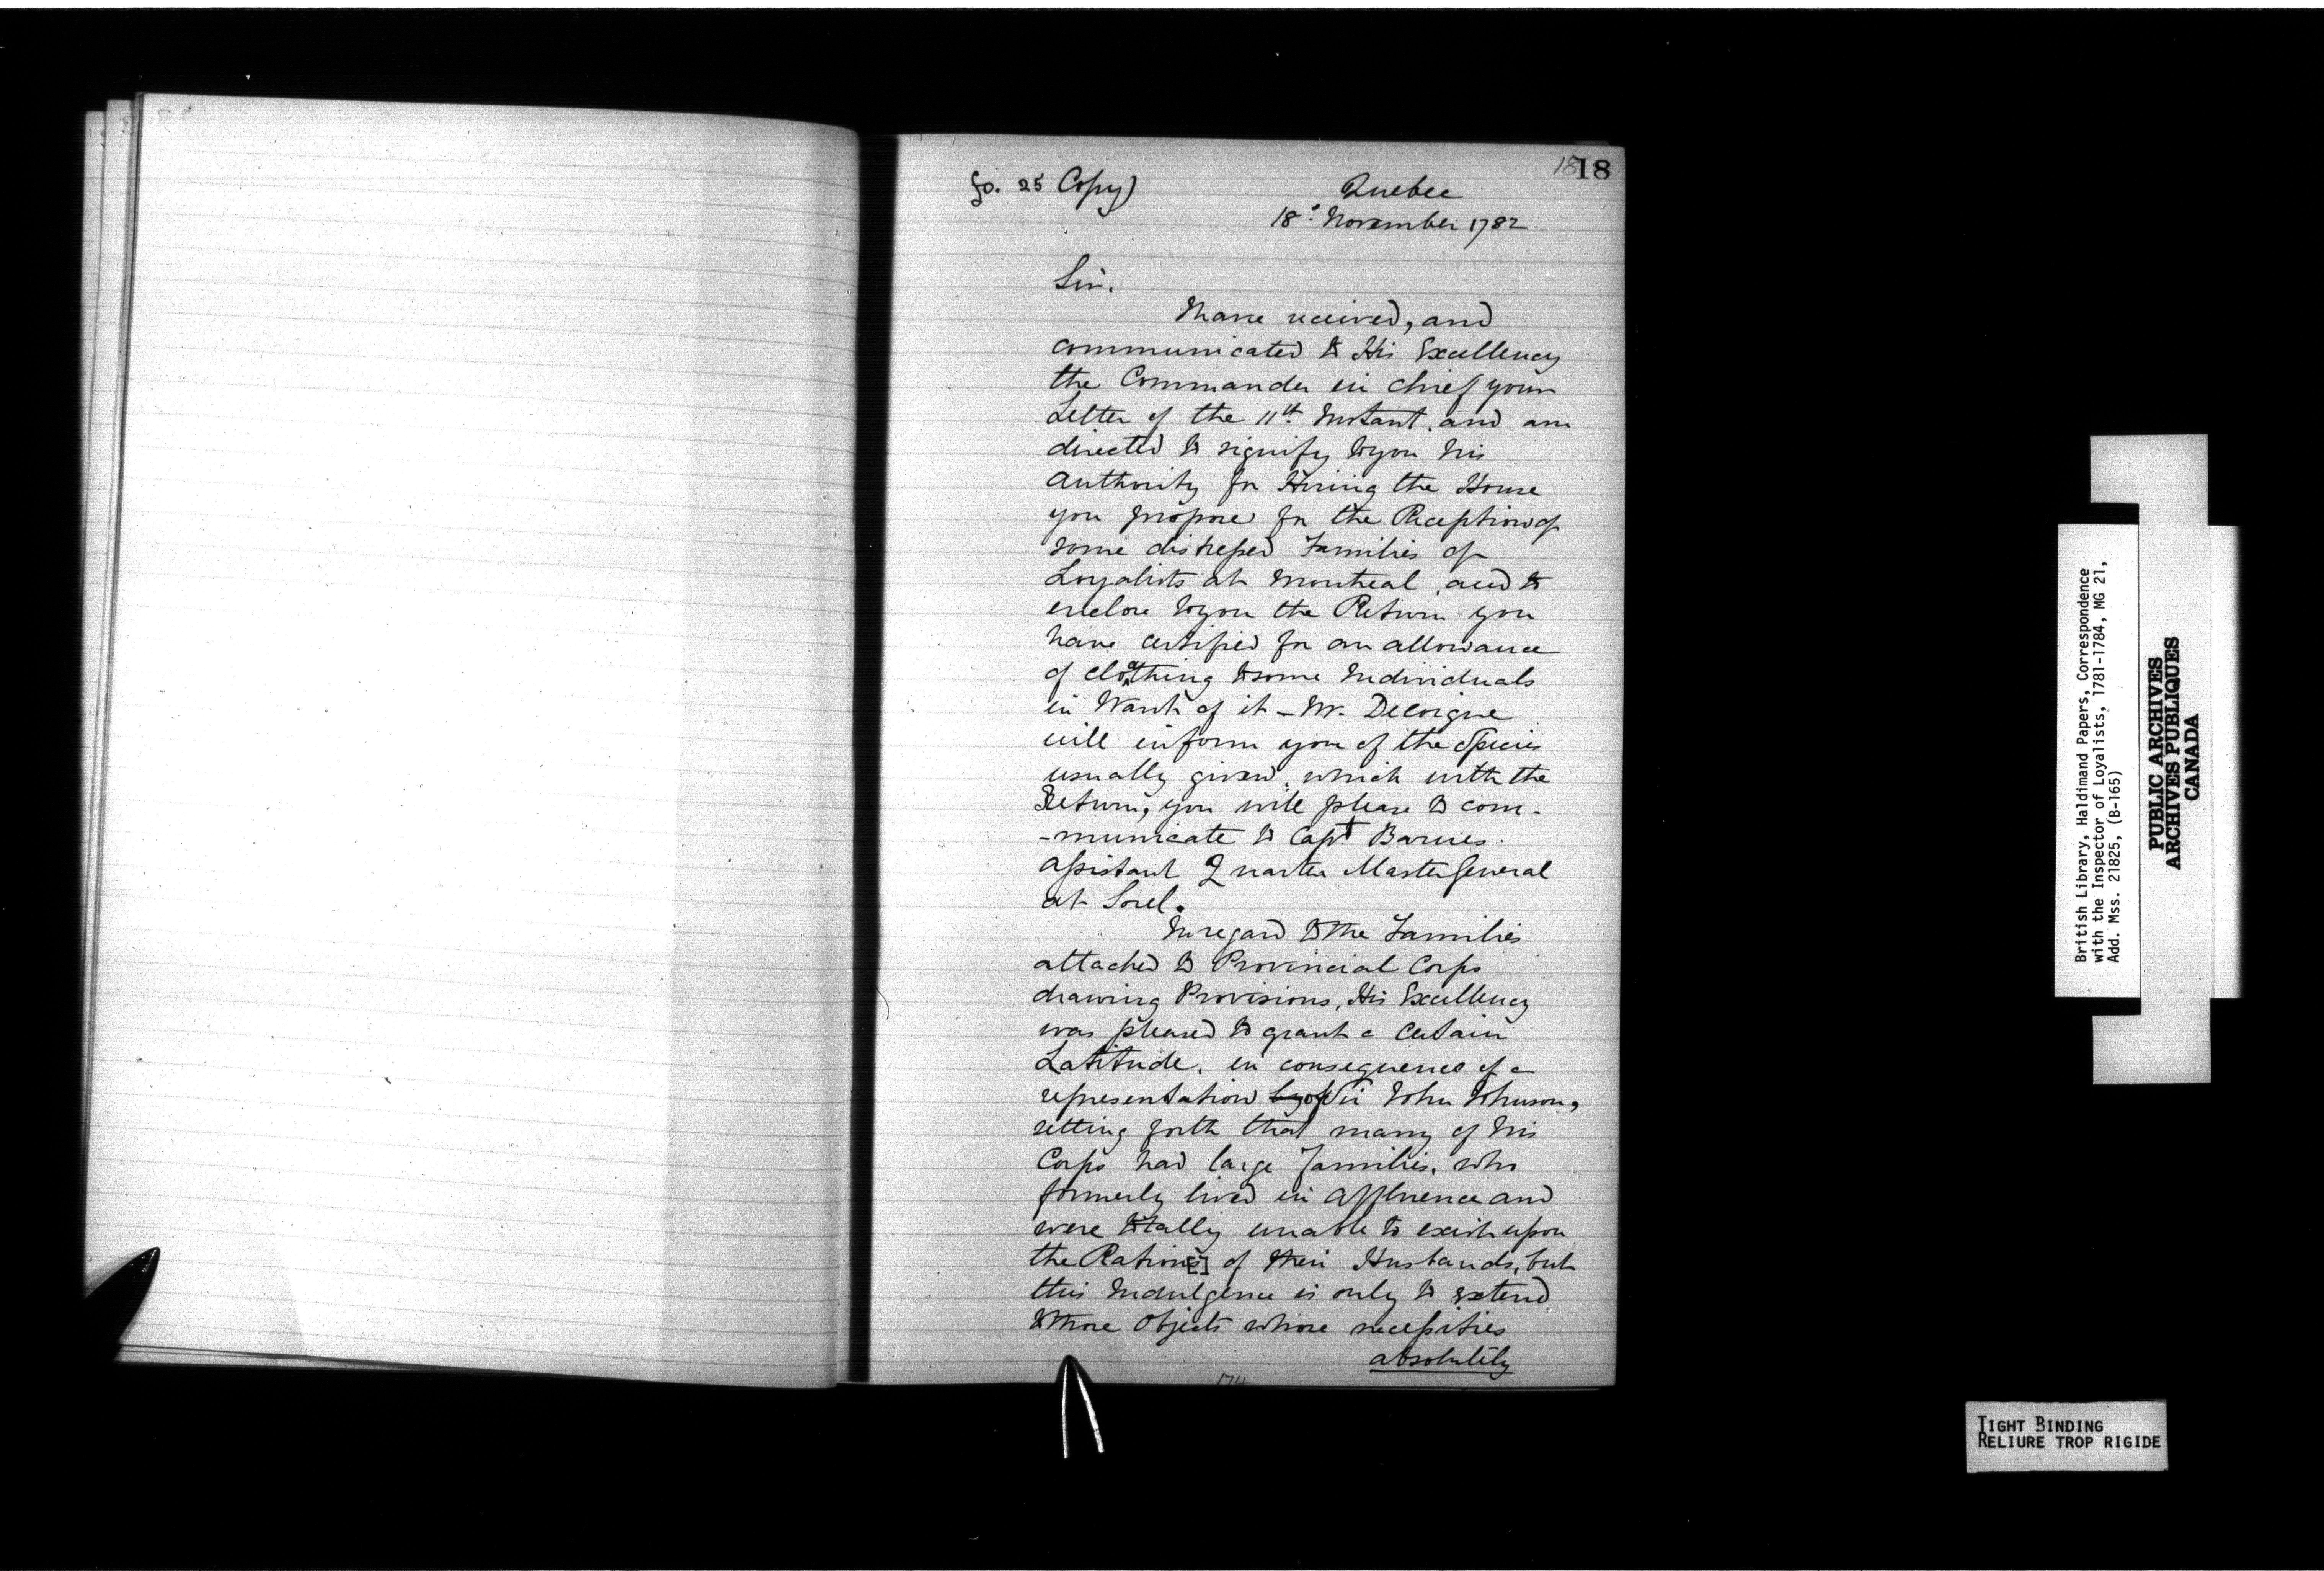 18 18
fo. 25 Copy)
Quebec
18th November 1782
Sir.
I have received, and
communicated to His Excellency
the Commander in Chief your
Letter of the 11th Instant, and am
directed to signify to you his
Authority for Hiring the House
you propose for the Reception of
some distressed Families of
Loyalists at Montreal, and to
enclose to you the Return you
have certified for an allowance
of cloathing to some Individuals
in Want of it – Mr. Decoigne
will inform you of the Species
usually given, which with the
Return, you will please to com-
-municate to Capt Barnes.
Assistant Quarter Master General
at Sorel.
In regard to the Families
attached to Provincial Corps
drawing Provisions, His Excellency
was pleased to grant a certain
Latitude, in consequence of a
representation by of Sir John Johnson,
setting forth that many of his
Corps had large Families, who
formerly lived in Affluence and
were totally unable to exist upon
the Rations[] of their Husbands, but
this Indulgence is only to extend
to those Objects whose necessities
absolutely
British Library, Haldimand Papers, Correspondence
with the Inspector of Loyalists, 1781-1784, MG 21,
Add. Mss. 21825, (B-165)
PUBLIC ARCHIVES
ARCHIVES PUBLIQUES
CANADA
TIGHT BINDING
RELIURE TROP RIGIDE